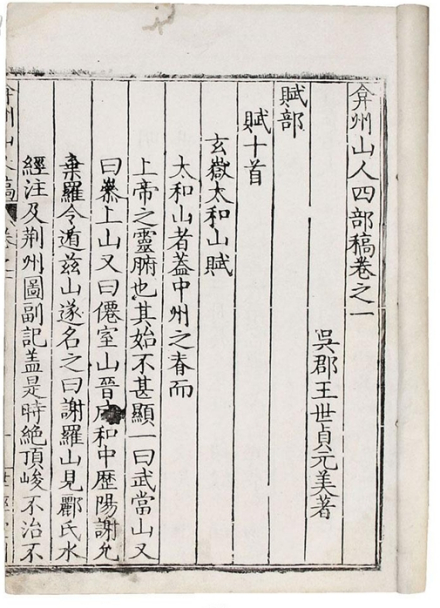 弇州山人四部稿卷之一
吳郡王世貞元美著
賦部
賦十首
玄嶽太和山賦
太和山者蓋中州之脊而
上帝之靈腑也其始不甚顯一曰武當山又
曰嵾上山又曰僊室山晉咸和中歷陽謝允
棄羅令遁茲山遂名之曰謝羅山見酈氏水
經注及荆州圖副記蓋是時絶頂峻不治不
弇州山人稿 卷之一